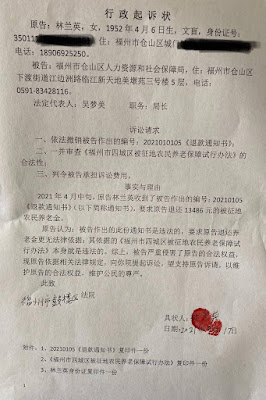 行政起诉状
原告：林兰英，女，1952年4月6日生，文盲，身份证号：
35011 ，住：福州市仓山区城门
电话：18906925250.
被告：福州市仓山区人力资源和社会保障局，住：福州市仓山区下
渡街道江边洲路临江新天地吴堪苑三号楼5层，电话：
0591-83428116.
法定代表人：吴梦英 职务：局长
诉讼请求
一、依法撤销被告作出的编号：20210105《退款通知书》，
二、一并审查《福州市四城区被征地农民养老保障试行办法》的
合法性；
三、判令被告承担诉讼费用。
事实与理由
2021年4月中旬，原告林兰英收到了被告作出的编号：20210105
《退款通知书》(以下简称通知书)，要求原告退还13486元的被征地
农民养老金。
原告认为，被告作出的此份通知书是违法的，要求原告退还养
老金更无法律依据，其依据的《福州市四城区被征地农民养老保障试
行办法》本身就是违法的。综上，被告严重侵害了原告的合法权益，
现原告依据相关法律规定，向你院提起诉讼，望支持原告诉请，以维
护原告的合法权益，维护公民的尊严。
此致
福州市 法院
具状人：
日期：
附件：1、20210105《退款通知书》复印件一份
2、《福州市四城区被征地农民养老保障试行办法》复印件一份
3、林兰英身份证复印件一份
1